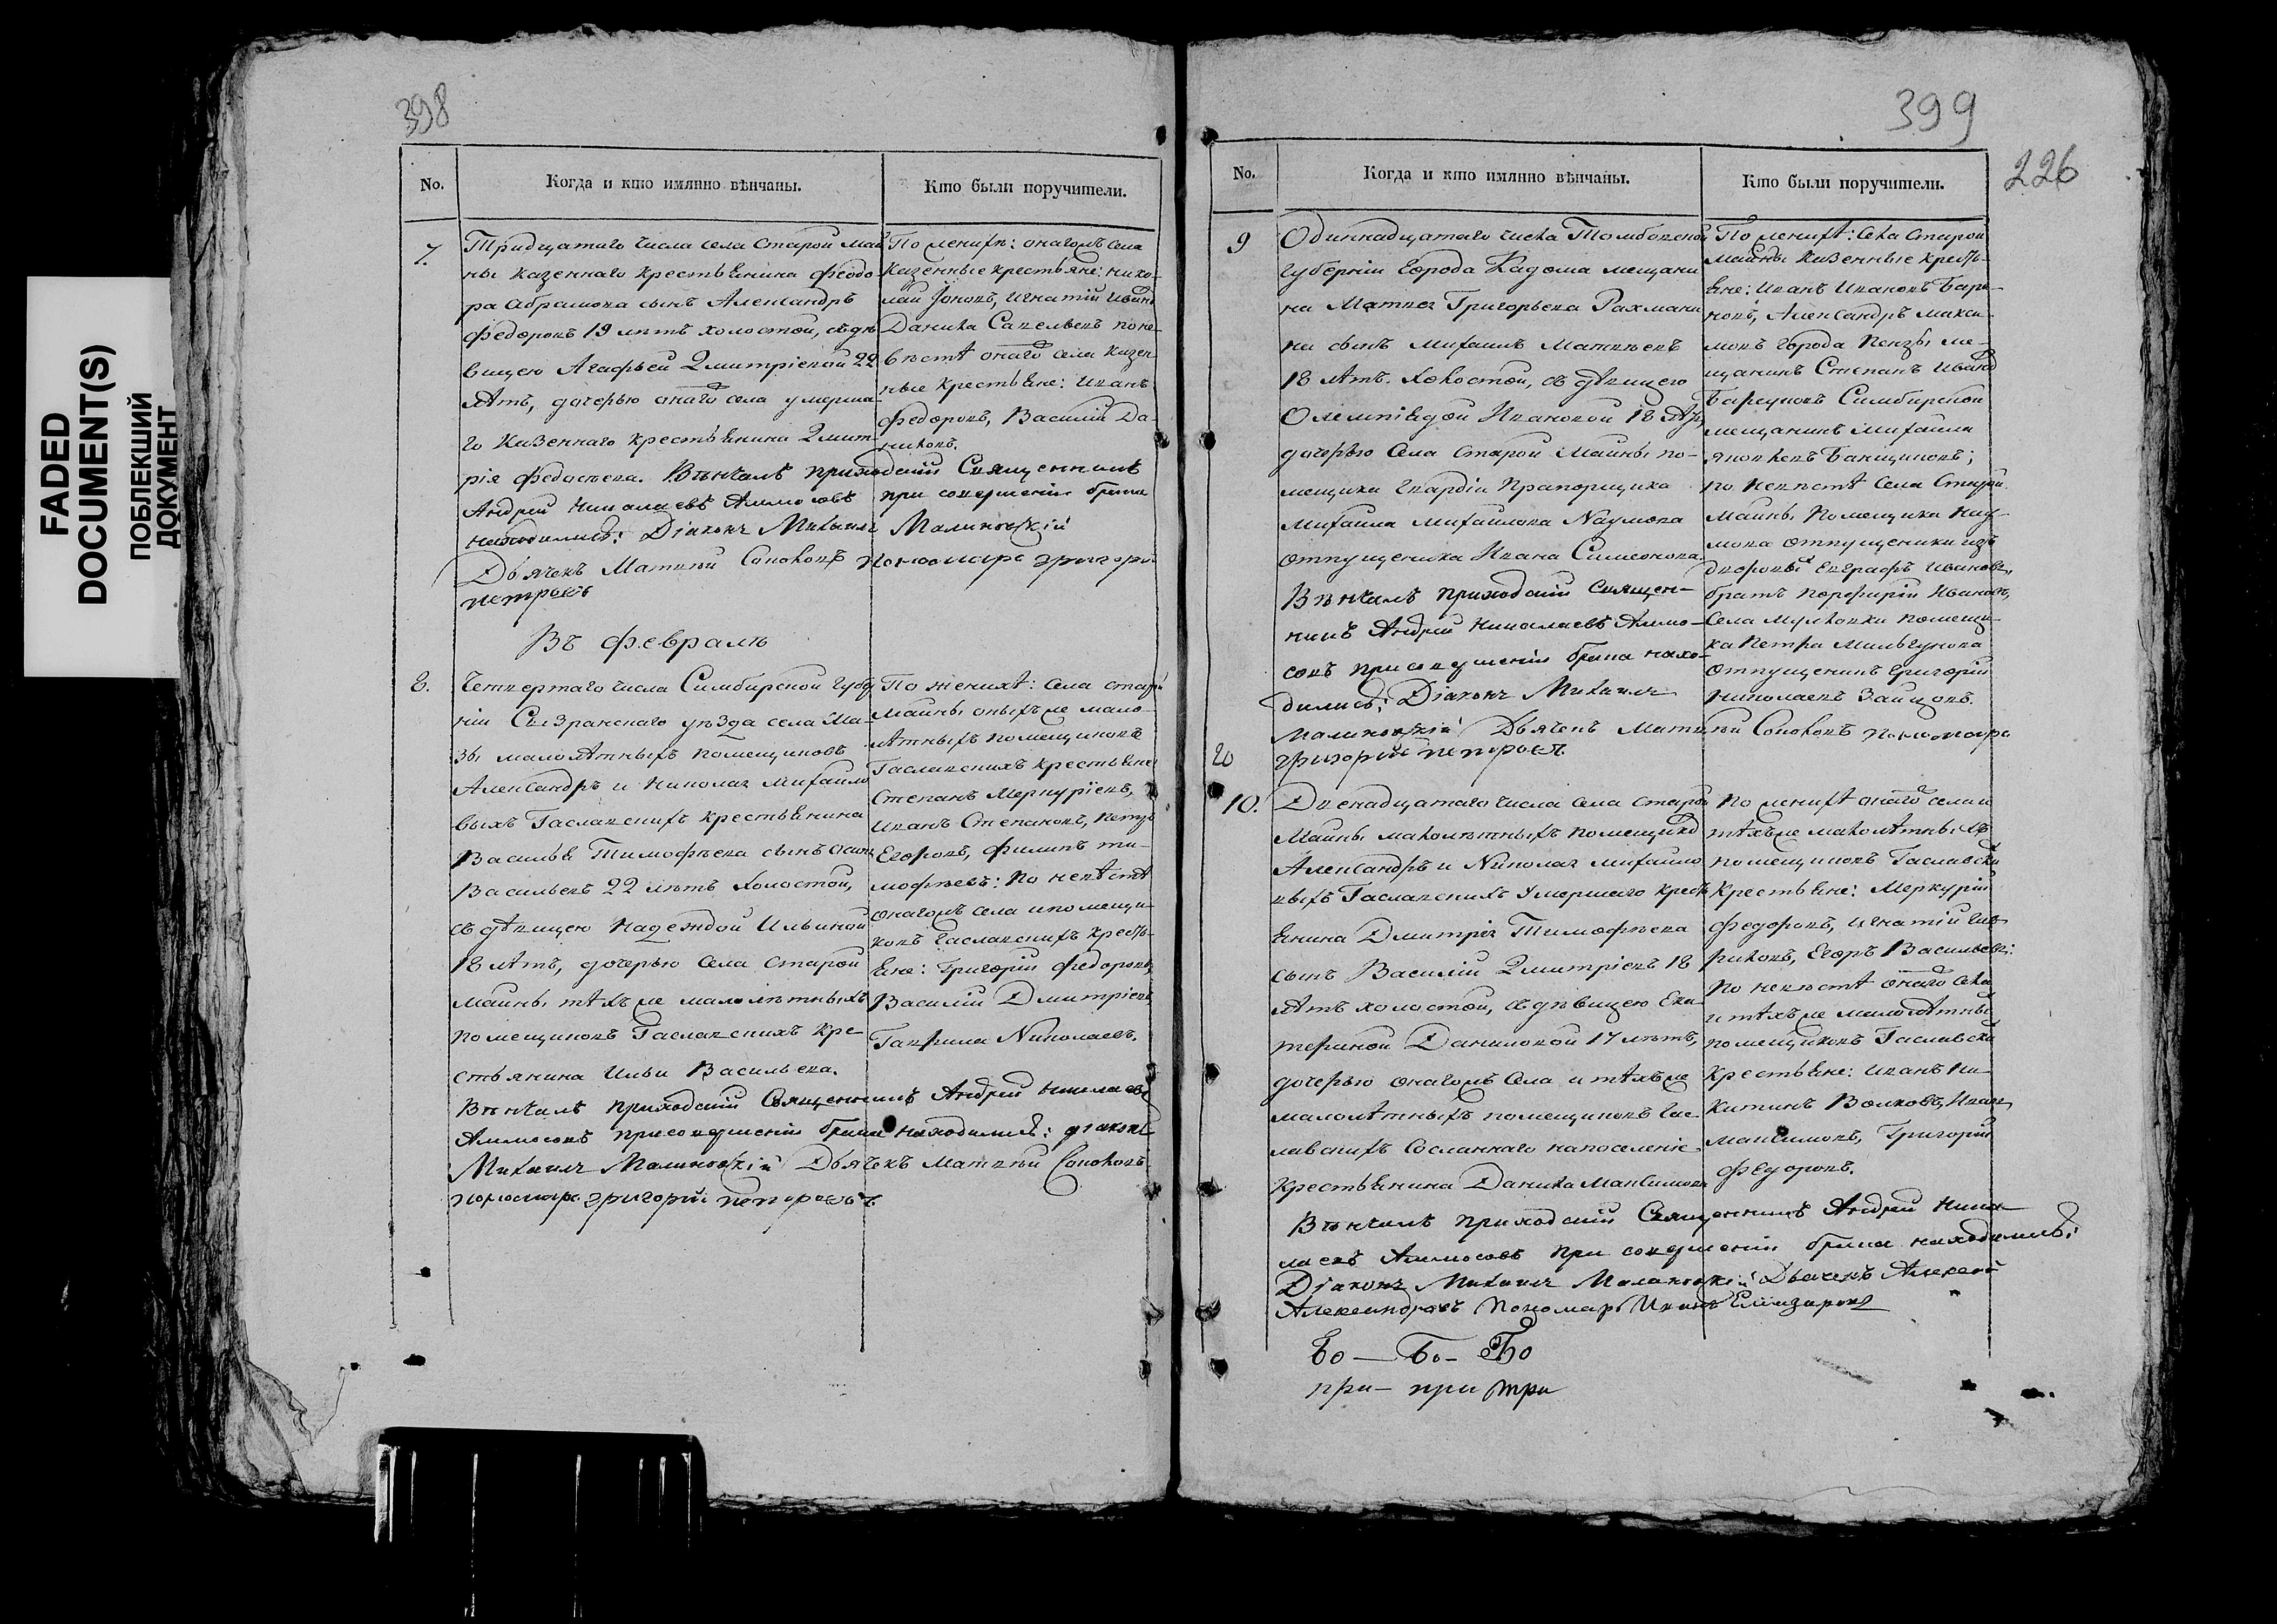 FADED
DOCUMENT(S)
ПОБЛЕКШИЙ
ДОКУМЕНТ
398
No.
Когда и кто имянно вѣнчаны.
Кто были поручители.
7.
Тридцатаго числа села Старой Май
ны казеннаго крестьянина Феодо
ра Абрамова сынъ Александръ
Федоровъ 19 лѣтъ холостой, съ дѣ
вицею Агафьей Дмитріевой 22
лѣтъ, дочерью онаго села умерша
го казеннаго крестьянина Дмит
рія Федосѣева. Вѣнчалъ приходскій Священникъ
Андрей Николаевъ при совершеніи брака
находились: Діаконъ Михаилъ Малиновскій
Дьячекъ Матвѣй Соколовъ пономарь Григорій
Петровъ
По женихѣ: онагожъ села
казенные крестьяне: Нико-
лай Іоновъ, Игнатій Иванъ
Данила Савельевъ по не-
вѣстѣ онаго села казен
ные крестьяне: Иванъ
Федоровъ, Василій Да-
ниловъ.
Въ февралѣ
8.
Четвертаго числа Симбирской губер
ніи Сызранскаго уѣзда села Ма-
зы малолѣтныхъ помещиковъ
Александръ и Николая Михайло
выхъ Гаславскихъ крестьянина
Василья Тимофѣева сынъ
Васильевъ 22 лѣтъ холостой,
съ дѣвицею Надеждой Ильиной
18 лѣтъ, дочерью села Старой
Майны тѣхъ же малолѣтныхъ
помещиковъ Гаславскихъ кре-
стьянина Ильи Васильева.
Вѣнчалъ приходскій Священникъ Андрей Николаевъ
при совершеніи брака находились: діаконъ
Михаилъ Малиновскій Дьячекъ Матвѣй Соколовъ
пономарь Григорій Петровъ
По женихѣ: села Старой
Майны оныхъ же мало-
лѣтныхъ помещиковъ
Гаславскихъ крестьяне
Степанъ Меркуріевъ,
Иванъ Степановъ, Петръ
Егоровъ, Филипъ Ти-
мофѣевъ: По невѣстѣ
онагожъ села и помещи-
ковъ Гаславскихъ кресть-
яне: Григорій Федоровъ,
Василій Дмитріевъ
Гаврила Николаевъ.
399
226
No.
Когда и кто имянно вѣнчаны.
Кто были поручители.
9
Одиннадцатаго числа Томбовской
губерніи города Кадома мещани
на Матвея Григорьева Рахмани
на сынъ Михаилъ Матвѣевъ
18 лѣтъ. холостой, съ дѣвицею
Олемпіядой Ивановой 18 лѣтъ,
дочерью села Старой Майны по-
мещика Гвардіи Прапорщика
Михаила Михаилова Наумова
отпущеника Ивана Симеонова
Вѣнчалъ приходскій Священ-
никъ Андрей Николаевъ
при совершеніи брака нахо-
дились: Діаконъ Михаилъ
Малиновскій Дьячекъ Матвѣй Соколовъ пономарь
Григорій Петровъ
По женихѣ: Села Старой
Майны казенные кресть-
яне: Иванъ Ивановъ Бари-
новъ, Александръ Макси-
мовъ города Пензы ме-
щанинъ Степанъ Иванъ
Барсуковъ Симбирской
мещанинъ Михаила
Яковлевъ Банщиковъ;
по невѣстѣ Села Старой
Майны Помещика Нау-
мова отпущеники изъ
дворовый Евграфъ Ивановъ,
братъ Порфирій Ивановъ,
села помещи-
ка Петра Мильгунова
отпущеникъ Григорій
Николаевъ Зайцовъ.
20
10.
Двенадцатаго числа села Старой
Майны малолѣтныхъ помещико
Александръ и Николая Михайло
выхъ Гаславскихъ умершаго кресть
янина Дмитрія Тимофѣева
сынъ Василій Дмитріевъ 18
лѣтъ холостой, съ дѣвицею Ека-
териной Даниловой 17 лѣтъ,
дочерью онагожъ села и тѣхъ же
малолѣтныхъ помещиковъ Гас-
лавскихъ сосланнаго на поселеніе
крестьянина Данила Максимова
Вѣнчалъ приходскій Священникъ Андрей Нико-
лаевъ при совершеніи брака находились:
Діаконъ Михаилъ Малиновскій Дьячекъ Алексей
Александровъ Пономарь Иванъ Елизаровъ
По женихѣ онаго села и
тѣхъ же малолѣтныхъ
помещиковъ Гаславски
крестьяне: Меркурій
Федоровъ, Игнатій Гав-
риловъ, Егоръ Васильевъ:
По невѣстѣ онаго села
и тѣхъ же малолѣтны
помещиковъ Гаславски
крестьяне: Иванъ Ни-
китинъ Волковъ, Иванъ
Максимовъ, Григорій
Федоровъ.
Бо — Бо — Бо
при — при при